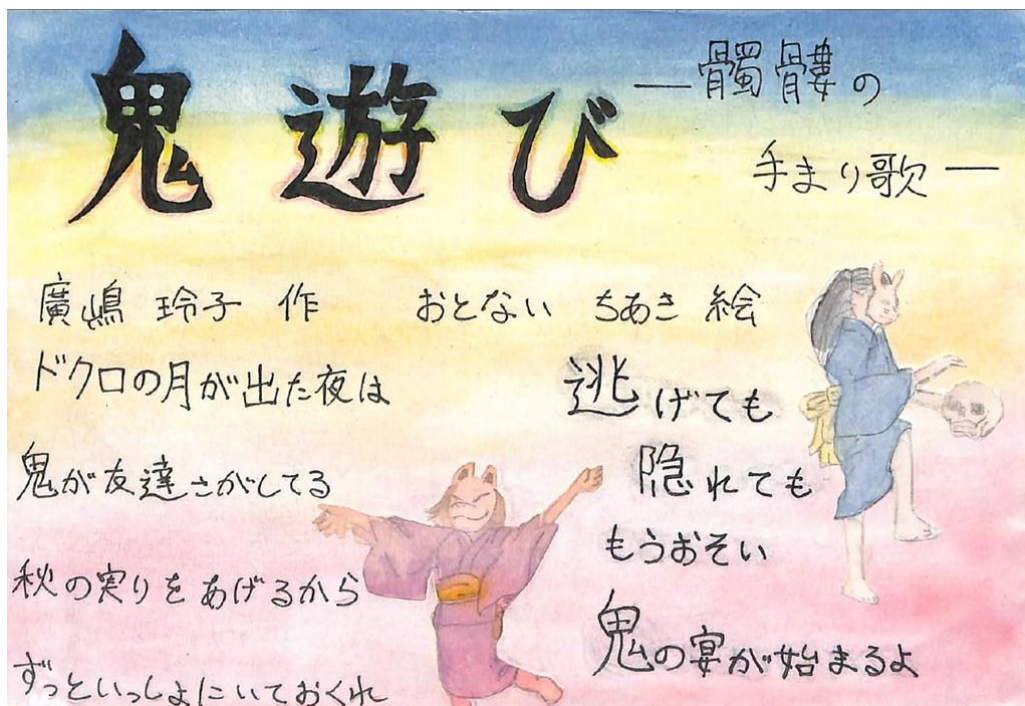 鬼遊び
―髑髏の
手まり歌―
廣嶋 玲子 作 おとない ちあき 絵
ドクロの月が出た夜は
鬼が友達さがしてる
秋の実りをあげるから
ずっといっしょにいておくれ
逃げても
隠れても
もうおそい
鬼の宴が始まるよ